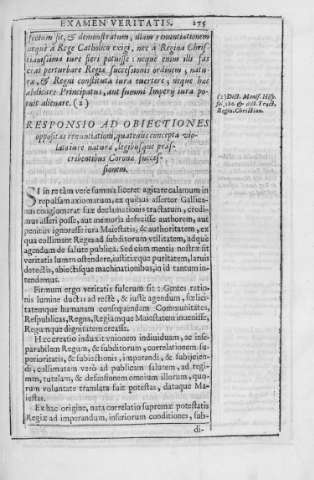 EXAMEN VERITATIS. 275
fectum sit, & demonstratum, illam renuntiationem
neque à Rege Catholico exigi, nec à Regina Chris-
tianissima iure fieri potuisse: neque enim illi fas
erat perturbare Regia successionis ordinem, natu-
ra, & Regni constituta iura evertere; neque hac
abdicare Principatus, aut summi Imperij iura po-
tuit alienare. (2)
(2) Dict. Manif. Hisp.
fol. 120. & dict. Tract.
Regin. Christian.
RESPONSIO AD OBIECTIONES
oppositas renuntiationi, quatenus concepta vio-
latur iure natura, legibusque præs-
cribentibus Corona succes-
sionem.
SI in re tàm verè summa liceret agitare calamum in
repassam axiomatum, ex quibus asserter Gallica-
na conglomerat suæ declamationis tractatum, credi-
mus asseri posse, aut memoria defecisse authorem, aut
penitus ignorasse iura Maiestatis, & authoritatem, ex
qua collimant Regia ad subditorum vtilitatem, adque
agendum de salute publica. Sed eium mentis nostræ sit
veritatis lumen ostendere, iustitiæque puritatem, laruis
detectis, abiectisque machinationibus, in id tantum in-
tendemus.
Firmum ergo veritatis fulcrum sit: Gentes ratio-
nis lumine ductas ad rectè, & iustè agendum, fœlici-
tatemque humanam consequendam Communitates,
Respublicas, Regna, Regiamque Maiestatem inuenisse,
Regumque dignitatem creasse.
Hæc creatio induxit vnionem indiuiduam, ac inse-
parabilem Regum, & subditorum, correlationem su-
perioritatis, & subiectionis, imperandi, & subijcien-
di, collimatam verò ad publicam salutem, ad regi-
men, tutelam, & defensionem omnium illorum, quo-
rum voluntate translata fuit potestas, dataque Ma-
iestas.
Ex hac origine, nata correlatio supremæ potestatis
Regiæ ad imperandum, inferiorum conditiones, sub-
di-